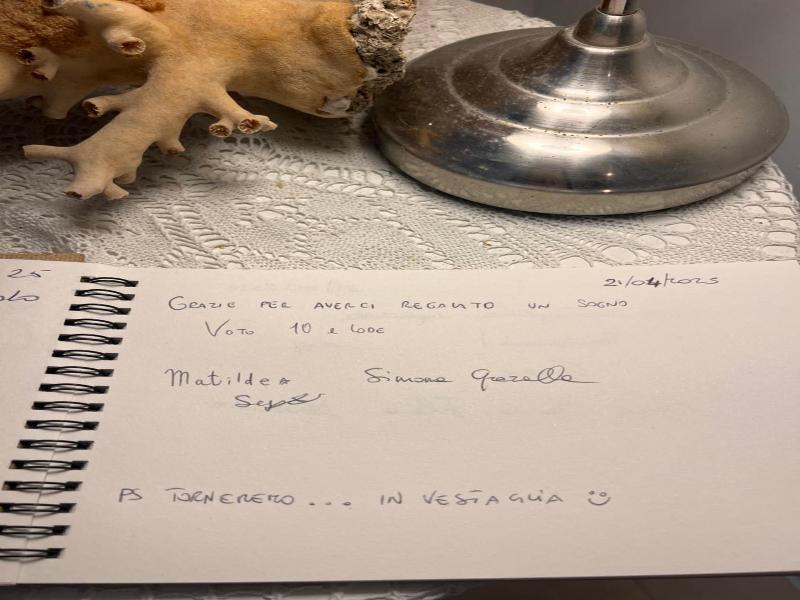 25
21/04/2025
GRAZIE PER AVERCI REGALATO UN SOGNO
VOTO 10 e LODE
Matilde Simone
PS TORNEREMO... IN VESTAGLIA :)